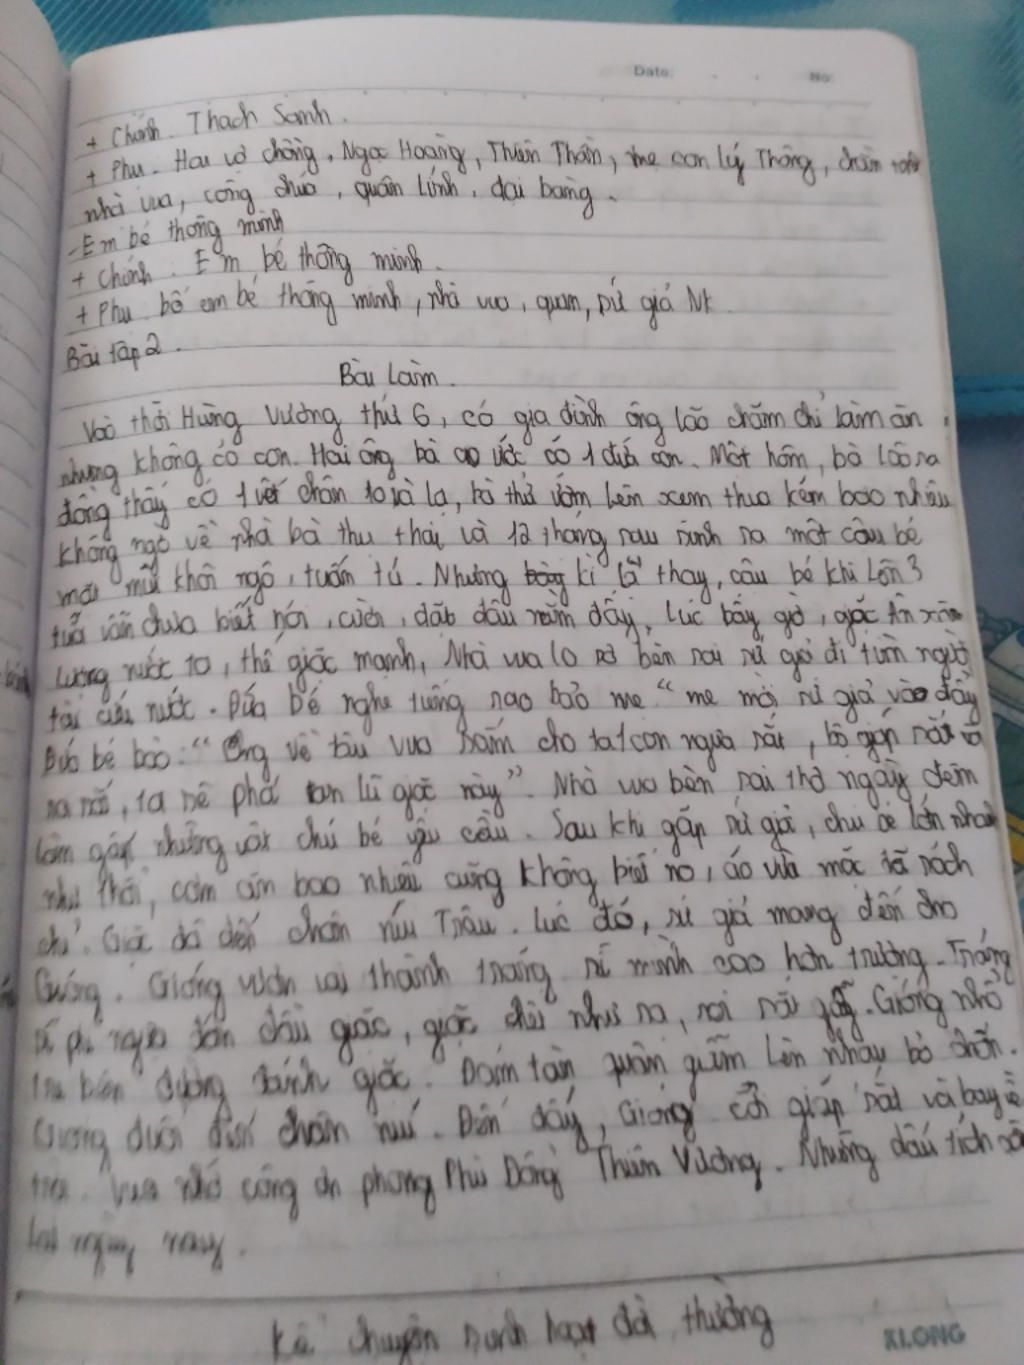 Date: No:
+ Chính. Thạch Sanh.
+ Phụ. Hai vợ chồng, Ngọc Hoàng, Thiên Thần, mẹ con lý Thông, chằn
nhà vua, công chúa, quân lính, đại bàng.
- Em bé thông minh
+ Chính. Em bé thông minh.
+ Phụ bố em bé thông minh, nhà vua, quan, sứ giả
Bài tập 2.
Bài Làm.
Vào thời Hùng Vương thứ 6, có gia đình ông lão chăm chỉ làm ăn
nhưng không có con. Hai ông bà ao ước có 1 đứa con. Một hôm, bà lão ra
đồng thấy có 1 vết chân to và lạ, bà thử ướm lên xem thua kém bao nhiêu
không ngờ về nhà bà thụ thai và 12 tháng sau sinh ra một cậu bé
mặt mũi khôi ngô, tuấn tú. Nhưng kì lạ thay, cậu bé khi lên 3
tuổi vẫn chưa biết nói, cười, đặt đâu nằm đấy. Lúc bấy giờ, giặc Ân xâm
lược nước ta, thế giặc mạnh, Nhà vua lo sợ bèn sai sứ giả đi tìm người
tài cứu nước. Đứa bé nghe tiếng rao bảo mẹ "mẹ mời sứ giả vào đây
Đứa bé bảo: "Ông về tâu vua sắm cho ta 1 con ngựa sắt, bộ giáp sắt và
, ta sẽ phá tan lũ giặc này". Nhà vua bèn sai thợ ngày đêm
làm gấp những vật chú bé yêu cầu. Sau khi gặp sứ giả, chú bé lớn nhanh
như thổi, cơm ăn bao nhiêu cũng không biết no, áo vừa mặc đã rách
chỉ. Giặc đã đến chân núi Trâu. Lúc đó, sứ giả mang đến cho
Gióng. Gióng vươn vai thành tráng sĩ mình cao hơn trượng. Tráng
sĩ phi ngựa đón đầu giặc, giặc chết như rạ, roi sắt gãy. Gióng nhổ
tre bên đường đánh giặc. Đám tàn quân giẫm lên nhau bỏ chốn.
Gióng đuổi đến chân núi. Đến đấy, Gióng cởi giáp sắt và bay về
trời. Vua nhớ công ơn phong Phù Đổng Thiên Vương. Những dấu tích còn
lại ngày nay.
Kể chuyện sinh hoạt đời thường
KLONG